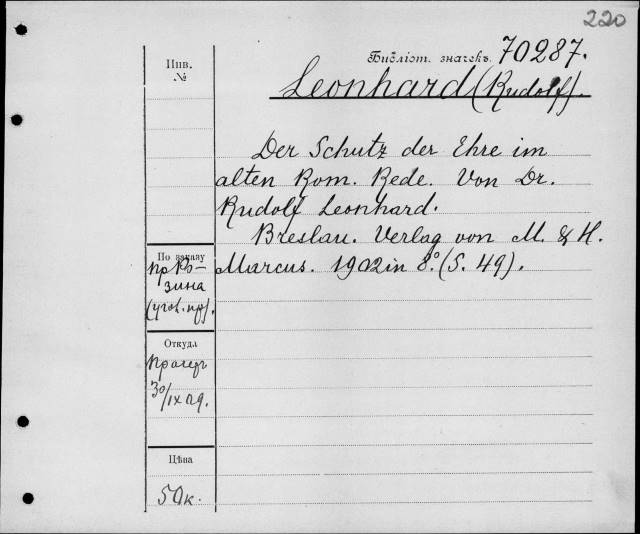 220
Библіот. значекъ 70287.
Инв.
№
Leonhard (Rudolf).
Der Schutz der Ehre im
alten Rom. Rede. Von Dr.
Rudolf Leonhard.
Breslau. Verlag von M. & H.
Marcus. 1902 in 8.° (S. 49).
По заказу
пр Ро-
зина
(угол. пр).
Откуда
30/IX 09.
Цѣна
50к.